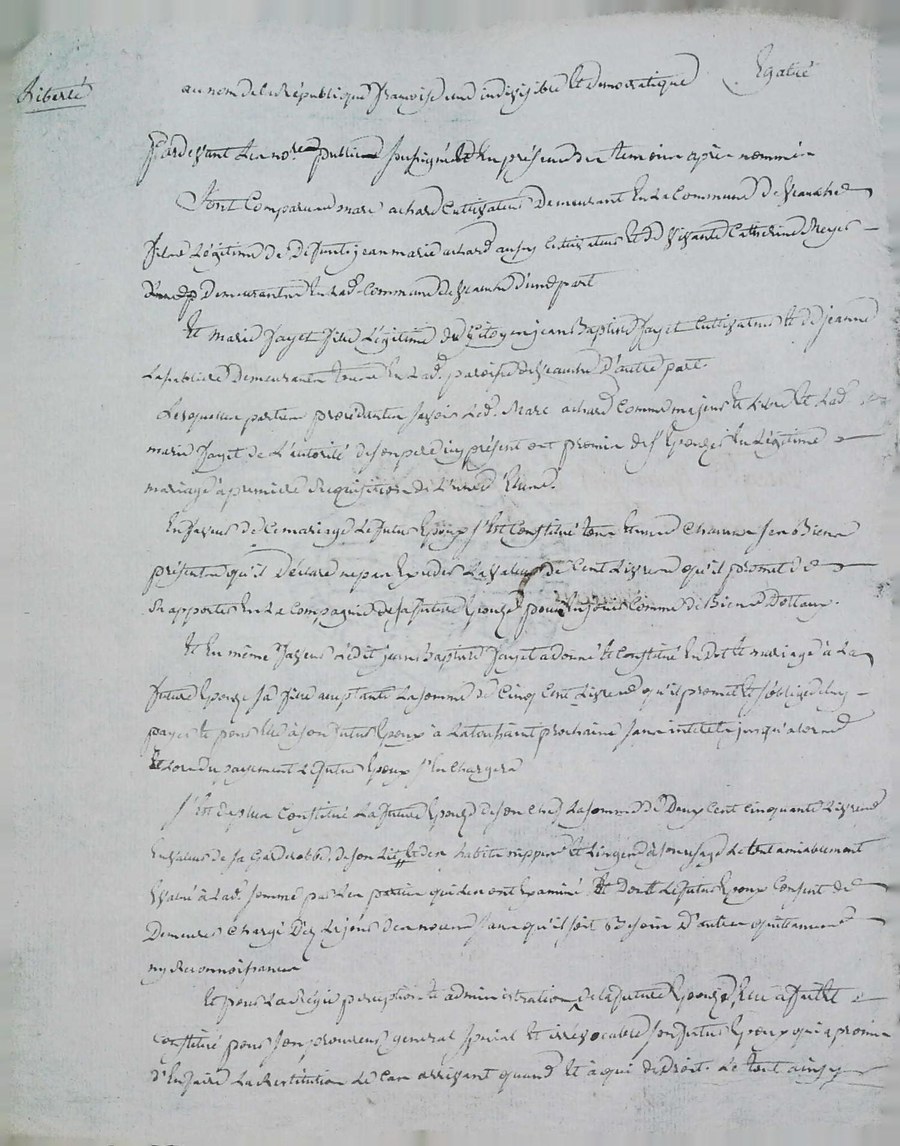 Liberté
Egalité
au nom de la République françoise une indivisible et democratique
Pardevant les no.res publics soussignés et en présence des temoins après nommés
Sont Comparus marc achard Cultivateur Demeurant En La Commune De
fils Légitime de Defunt jean marie achard aussy Cultivateur et de vivante Catherine
Demeurants En lad. Commune de d'une part
Et marie fayet fille Légitime du Citoyen jean Baptiste fayet Cultivateur et de jeanne
Demeurants tous En Lad. paroisse de d'autre part
Lesquelles parties procedantes savoir Led. Marc achard Comme majeur et Libre et Lad.
marie fayet de L'autorité de son pere icy présent ont promis de s'Epouzer En Légitime
mariage a premiere Requisition de L'une d'Elles.
En faveur de Ce mariage Le futur Epoux s'Est Constitué tous et uns Chacuns ses Biens
présents qu'il déclare ne pas Exceder La valeur de Cent Livres qu'il promet de
Rapporter En La Compagnie de sa future Epouze pour En jouir Comme de Biens Dottaux.
Et En même faveur Ledit jean Baptiste fayet a donné et Constitué En Dot et mariage à La
future Epouze sa fille acceptante La somme de Cinq Cent Livres qu'il promet et s'oblige de luy
payer et pour Elle à son futur Epoux a La toussaint prochaine sans interets jusqu'alors
Et Lors du payement Le futur Epoux s'En Chargera
S'Est De plus Constitué La future Epouze de son Chef La somme de Deux Cent Cinquante Livres
En valeur de sa Garderobbe, de son Lit et des habits nippes et Linges à son usage Le tout amiablement
Evalué à Lad. somme par Les parties qui Les ont Examiné Et Dont Le futur Epoux Consent de
Demeurer Chargé Dez Le jour des noces sans qu'il soit Besoin D'autres quittances
ny Reconnoissances
Et pour La Régie perception et administration de La future Epouze, Elle a fait et
Constitué pour son procureur general special et irrévocable son futur Epoux qui a promis
d'En faire La Restitution Le Cas arrivant quand et à qui de Droit. Le tout ainsy